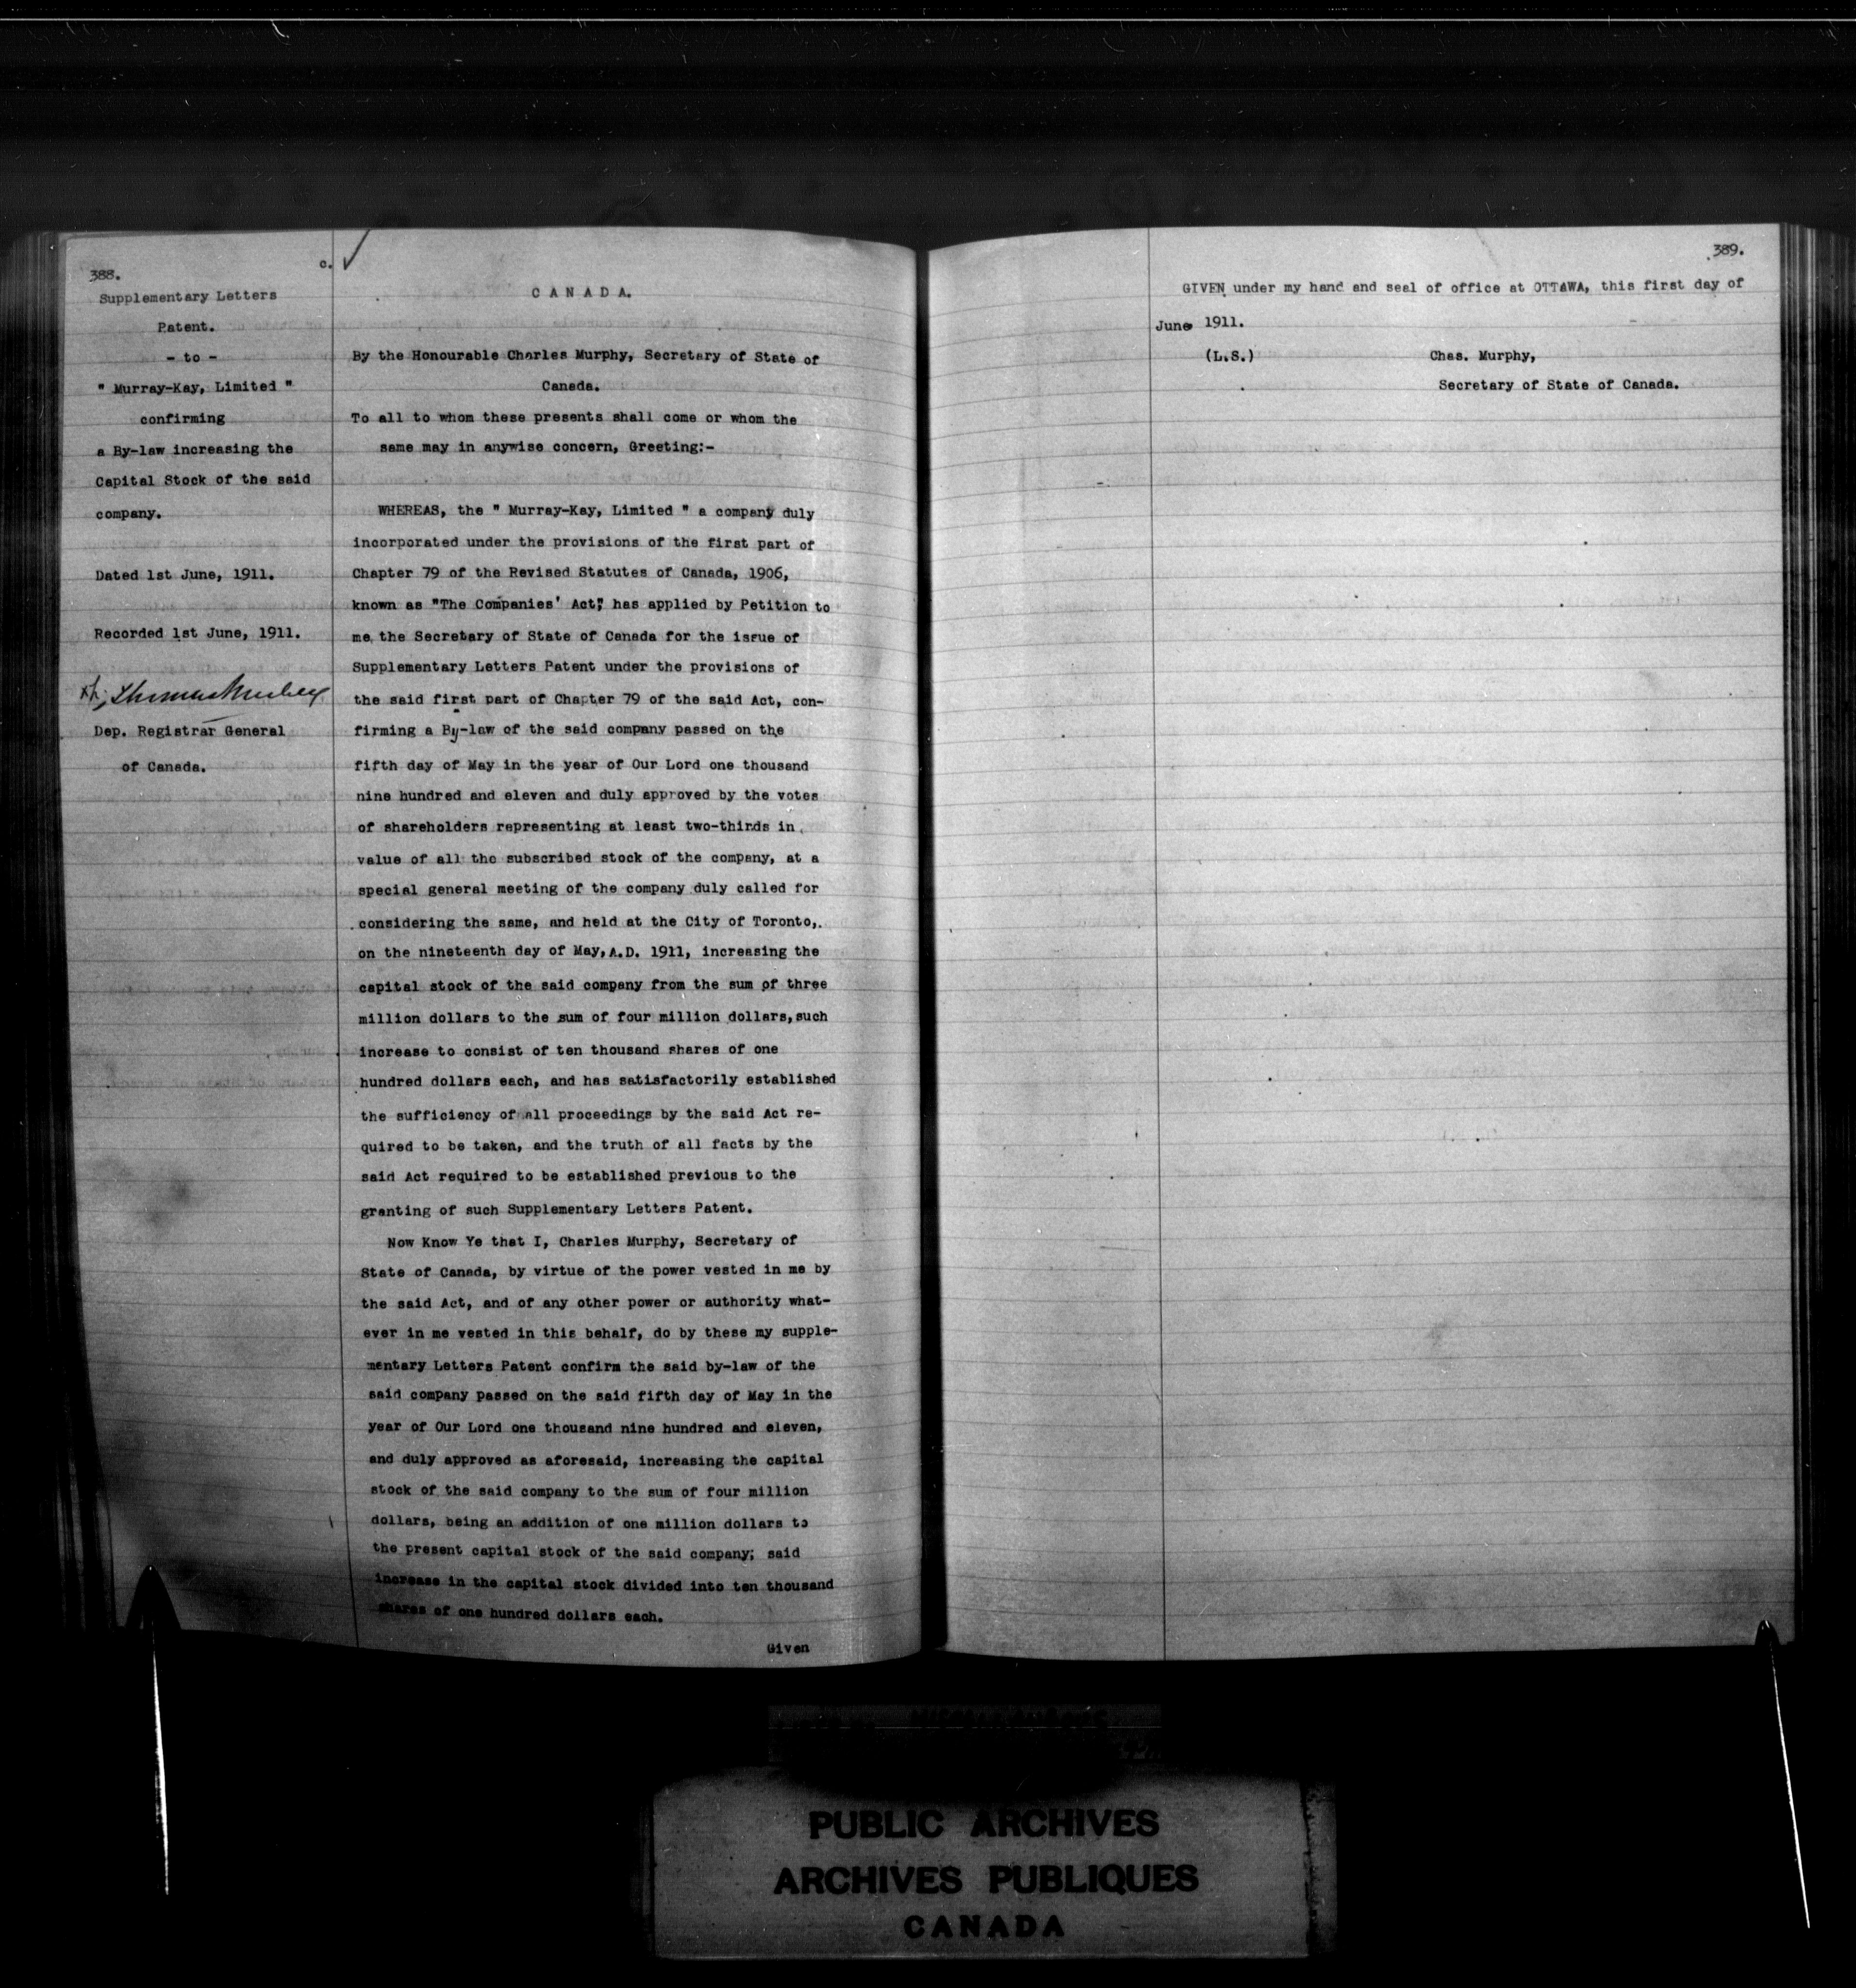 388.
c.
Supplementary Letters
Patent.
- to -
" Murray-Kay, Limited "
confirming
a By-law increasing the
Capital Stock of the said
company.
Dated 1st June, 1911.
Recorded 1st June, 1911.
Dep. Registrar General
of Canada.
CANADA.
By the Honourable Charles Murphy, Secretary of State of
Canada.
To all to whom these presents shall come or whom the
same may in anywise concern, Greeting:-
WHEREAS, the " Murray-Kay, Limited " a company duly
incorporated under the provisions of the first part of
Chapter 79 of the Revised Statutes of Canada, 1906,
known as "The Companies' Act", has applied by Petition to
me, the Secretary of State of Canada for the issue of
Supplementary Letters Patent under the provisions of
the said first part of Chapter 79 of the said Act, con-
firming a By-law of the said company passed on the
fifth day of May in the year of Our Lord one thousand
nine hundred and eleven and duly approved by the votes
of shareholders representing at least two-thirds in
value of all the subscribed stock of the company, at a
special general meeting of the company duly called for
considering the same, and held at the City of Toronto,
on the nineteenth day of May, A.D. 1911, increasing the
capital stock of the said company from the sum of three
million dollars to the sum of four million dollars, such
increase to consist of ten thousand shares of one
hundred dollars each, and has satisfactorily established
the sufficiency of all proceedings by the said Act re-
quired to be taken, and the truth of all facts by the
said Act required to be established previous to the
granting of such Supplementary Letters Patent.
Now Know Ye that I, Charles Murphy, Secretary of
State of Canada, by virtue of the power vested in me by
the said Act, and of any other power or authority what-
ever in me vested in this behalf, do by these my supple-
mentary Letters Patent confirm the said by-law of the
said company passed on the said fifth day of May in the
year of Our Lord one thousand nine hundred and eleven,
and duly approved as aforesaid, increasing the capital
stock of the said company to the sum of four million
dollars, being an addition of one million dollars to
the present capital stock of the said company; said
increase in the capital stock divided into ten thousand
shares of one hundred dollars each.
Given
389.
GIVEN under my hand and seal of office at OTTAWA, this first day of
June 1911.
(L.S.) Chas. Murphy,
Secretary of State of Canada.
PUBLIC ARCHIVES
ARCHIVES PUBLIQUES
CANADA